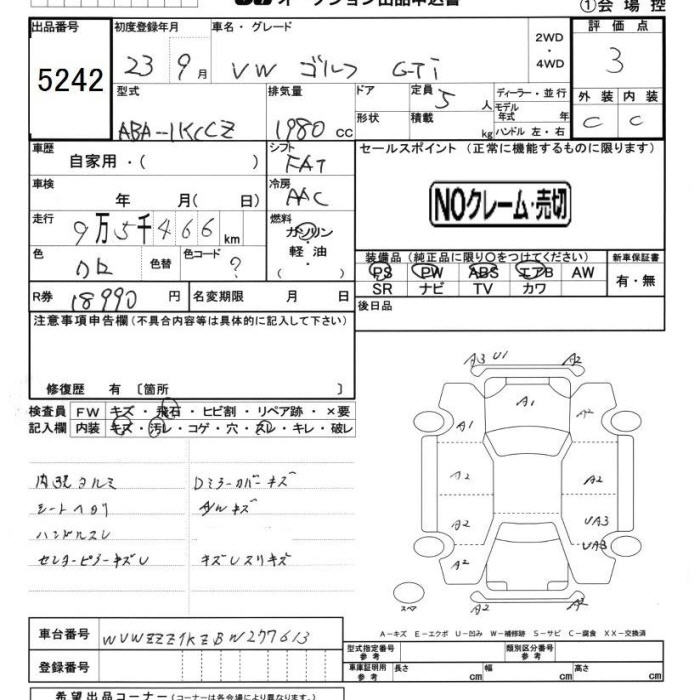 オークション出品申込書
①会場控
出品番号
5242
初度登録年月
23 9月
車名・グレード
VW ゴルフ GTi
2WD
・
4WD
評価点
3
外装 内装
C C
型式
ABA-1KCCZ
排気量
1980 cc
ドア
形状
定員 5 人
積載 kg
ディーラー・並行
モデル年式 年式
ハンドル 左・右
車歴
自家用・( )
シフト
FAT
車検
年 月( 日)
冷房
AAC
走行
9万5千466 km
燃料
ガソリン
・
軽油
・( )
色 色替 色コード ?
R券 18990 円
名変期限 月 日
セールスポイント (正常に機能するものに限ります)
NOクレーム・売切
装備品 (純正品に限り○をつけてください)
PS PW ABS エアB AW
SR ナビ TV カワ
新車保証書
有・無
後日品
注意事項申告欄 (不具合内容等は具体的に記入して下さい)
修復歴 有 〔箇所 〕
検査員 FW キズ・飛石・ヒビ割・リペア跡・×要
記入欄 内装 キズ・汚レ・コゲ・穴・スレ・キレ・破レ
Dミラーカバーキズ
ハンドルスレ
センターピラーキズU
キズUスリキズ
A3 U1 A2
A1
A1 A2
A2 A2
A2 UA3
UA3
A2
A2 A2
スペア
A-キズ E-エクボ U-凹み W-補修跡 S-サビ C-腐食 XX-交換済
車台番号 WVWZZZ1KZBW277613
登録番号
型式指定番号 参考
類別区分番号 参考
車庫証明用 参考 長さ cm 幅 cm 高さ cm
希望出品コーナー (コーナーは各会場により異なります)